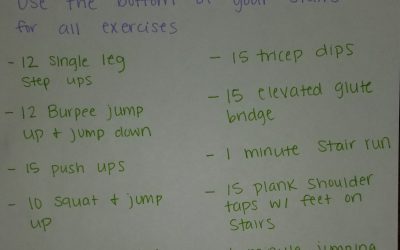 Use the bottom of your stairs
for all exercises
- 12 single leg
step ups
- 12 Burpee jump
up + jump down
- 15 push ups
- 10 squat + jump
up
- 15 tricep dips
- 15 elevated glute
bridge
- 1 minute stair run
- 15 plank shoulder
taps w/ feet on
stairs
jumping